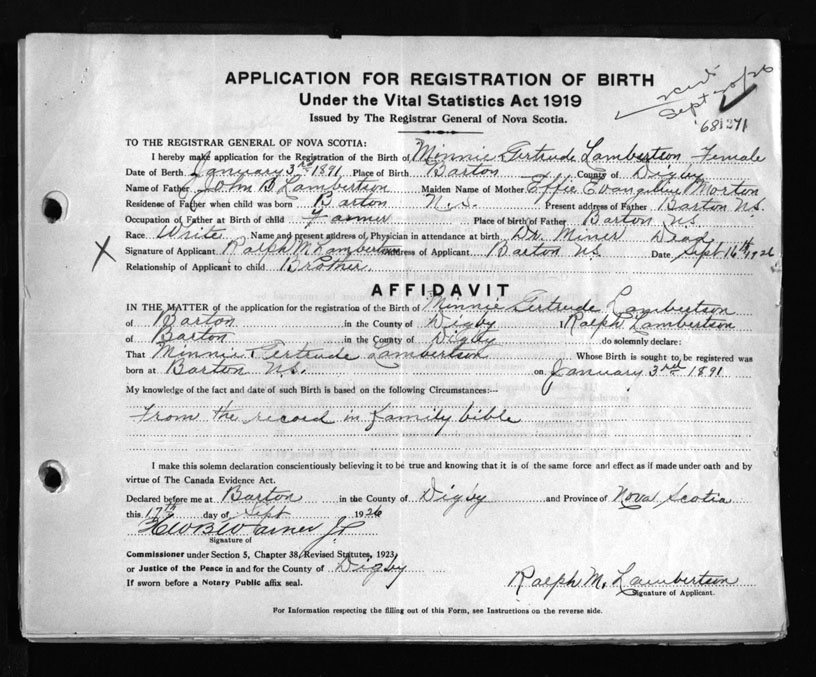 APPLICATION FOR REGISTRATION OF BIRTH
Under the Vital Statistics Act 1919
Issued by The Registrar General of Nova Scotia.
Sept 20/26
681271
TO THE REGISTRAR GENERAL OF NOVA SCOTIA:
I hereby make application for the Registration of the Birth of Minnie Gertrude Lambertson Female
Date of Birth January 3rd 1891 Place of Birth Barton County of Digby
Name of Father John B. Lambertson Maiden Name of Mother Effie Evangeline Morton
Residense of Father when child was born Barton N.S. Present address of Father Barton N.S.
Occupation of Father at Birth of child Farmer Place of birth of Father Barton N.S.
Race White Name and present address of Physician in attendance at birth Dr. Miner Dead
X Signature of Applicant Ralph M Lambertson Address of Applicant Barton N.S. Date Sept 16th 1926
Relationship of Applicant to child Brother.
AFFIDAVIT
IN THE MATTER of the application for the registration of the Birth of Minnie Gertrude Lambertson
of Barton in the County of Digby I Ralph Lambertson
of Barton in the County of Digby do solemnly declare:
That Minnie Gertrude Lambertson Whose Birth is sought to be registered was
born at Barton N.S. on January 3rd 1891
My knowledge of the fact and date of such Birth is based on the following Circumstances:—
From the record in family bible
I make this solemn declaration conscientiously believing it to be true and knowing that it is of the same force and effect as if made under oath and by
virtue of The Canada Evidence Act.
Declared before me at Barton in the County of Digby and Province of Nova Scotia
this 17th day of Sept 1926
Warner Jr
Signature of
Commissioner under Section 5, Chapter 38, Revised Statutes, 1923,
or Justice of the Peace in and for the County of Digby
If sworn before a Notary Public affix seal.
Ralph M. Lambertson
Signature of Applicant.
For Information respecting the filling out of this Form, see Instructions on the reverse side.